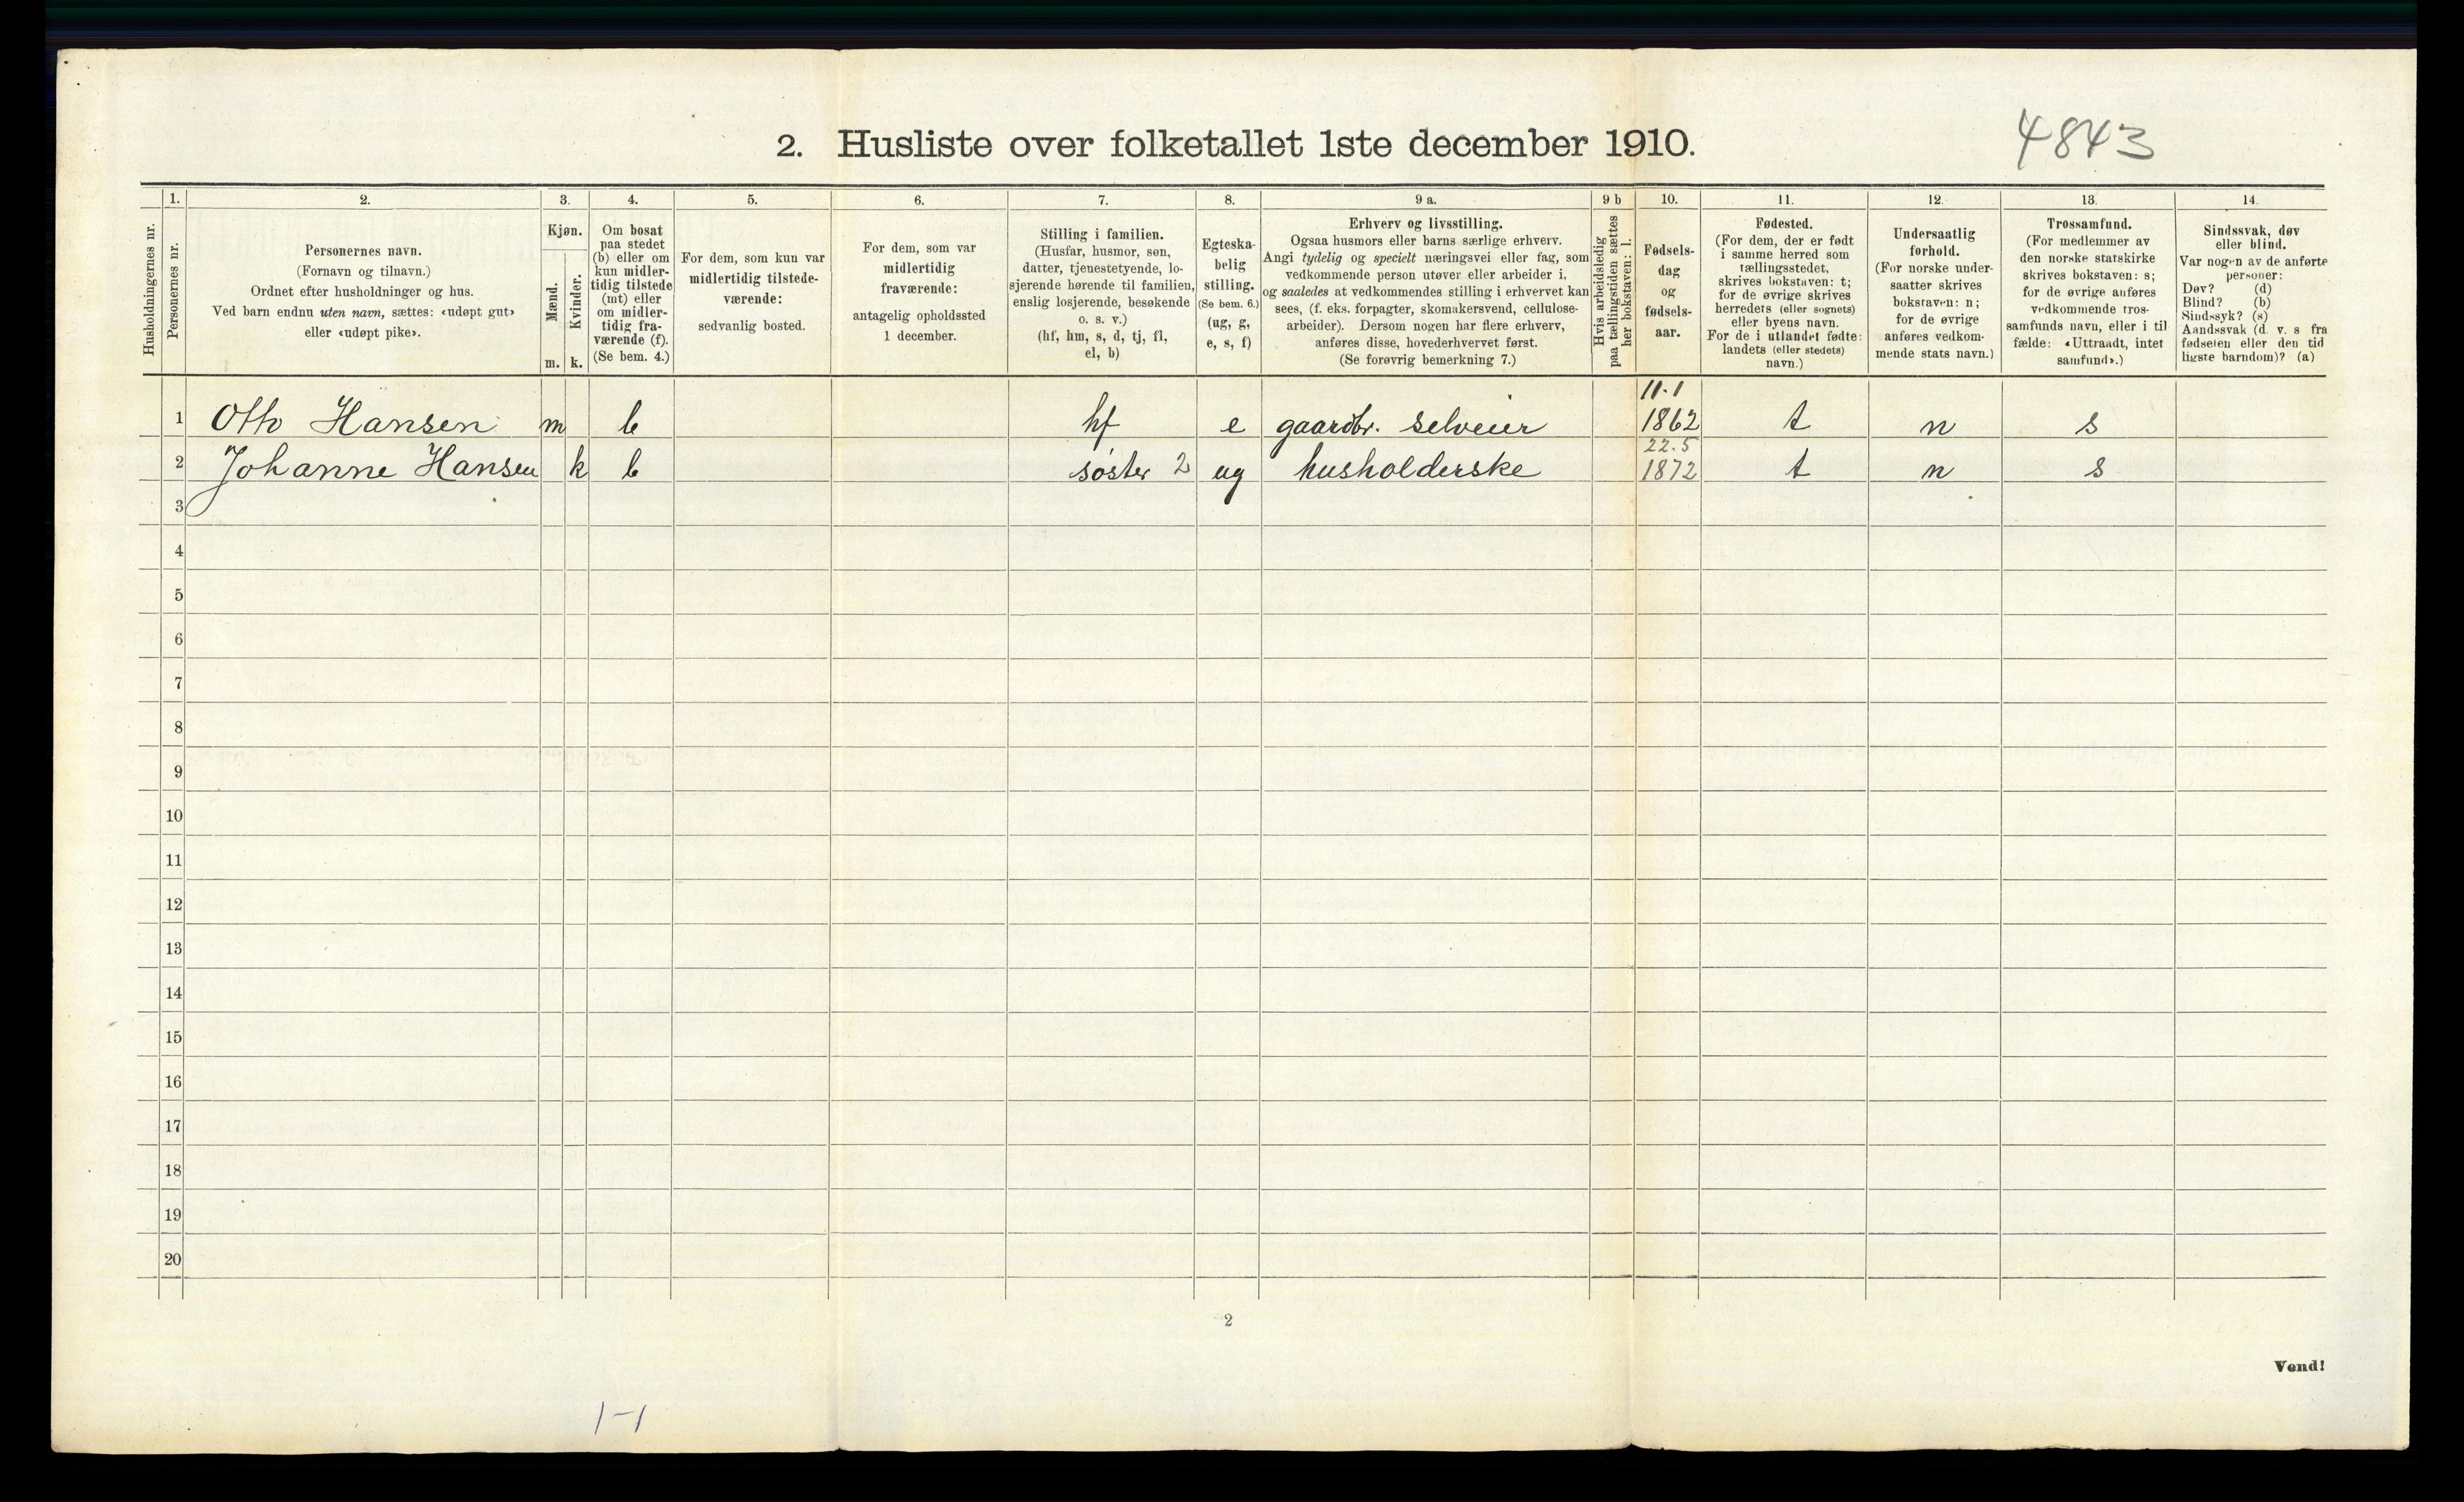 2. Husliste over folketallet 1ste december 1910.
4843
Husholdningernes nr.
1.
Personernes nr.
2.
Personernes navn.
(Fornavn og tilnavn.)
Ordnet efter husholdninger og hus.
Ved barn endnu uten navn, sættes: «udøpt gut»
eller «udøpt pike».
3.
Kjøn.
Mænd.
m.
Kvinder.
k.
4.
Om bosat
paa stedet
(b) eller om
kun midler-
tidig tilstede
(mt) eller
om midler-
tidig fra-
værende (f).
(Se bem. 4.)
5.
For dem, som kun var
midlertidig tilstede-
værende:
sedvanlig bosted.
6.
For dem, som var
midlertidig
fraværende:
antagelig opholdssted
1 december.
7.
Stilling i familien.
(Husfar, husmor, søn,
datter, tjenestetyende, lo-
sjerende hørende til familien,
enslig losjerende, besøkende
o. s. v.)
(hf, hm, s, d, tj, fl,
el, b)
8.
Egteska-
belig
stilling.
(Se bem. 6.)
(ug, g,
e, s, f)
9 a.
Erhverv og livsstilling.
Ogsaa husmors eller barns særlige erhverv.
Angi tydelig og specielt næringsvei eller fag, som
vedkommende person utøver eller arbeider i,
og saaledes at vedkommendes stilling i erhvervet kan
sees, (f. eks. forpagter, skomakersvend, cellulose-
arbeider). Dersom nogen har flere erhverv,
anføres disse, hovederhvervet først.
(Se forøvrig bemerkning 7.)
9 b
Hvis arbeidsledig
paa tællingstiden sættes
her bokstaven: l.
10.
Fødsels-
dag
og
fødsels-
aar.
11.
Fødested.
(For dem, der er født
i samme herred som
tællingsstedet,
skrives bokstaven: t;
for de øvrige skrives
herredets (eller sognets)
eller byens navn.
For de i utlandet fødte:
landets (eller stedets)
navn.)
12.
Undersaatlig
forhold.
(For norske under-
saatter skrives
bokstaven: n;
for de øvrige
anføres vedkom-
mende stats navn.)
13.
Trossamfund.
(For medlemmer av
den norske statskirke
skrives bokstaven: s;
for de øvrige anføres
vedkommende tros-
samfunds navn, eller i til
fælde: «Uttraadt, intet
samfund».)
14.
Sindssvak, døv
eller blind.
Var nogen av de anførte
personer:
Døv? (d)
Blind? (b)
Sindssyk? (s)
Aandssvak (d. v. s fra
fødselen eller den tid
ligste barndom)? (a)
11.1
1 Otto Hansen m b hf e gaardbr. selveier 1862 t n s
22.5
2 Johanne Hansen k b søster 2 ug husholderske 1872 t n s
3
4
5
6
7
8
9
10
11
12
13
14
15
16
17
18
19
20
2
Vend!
1-1